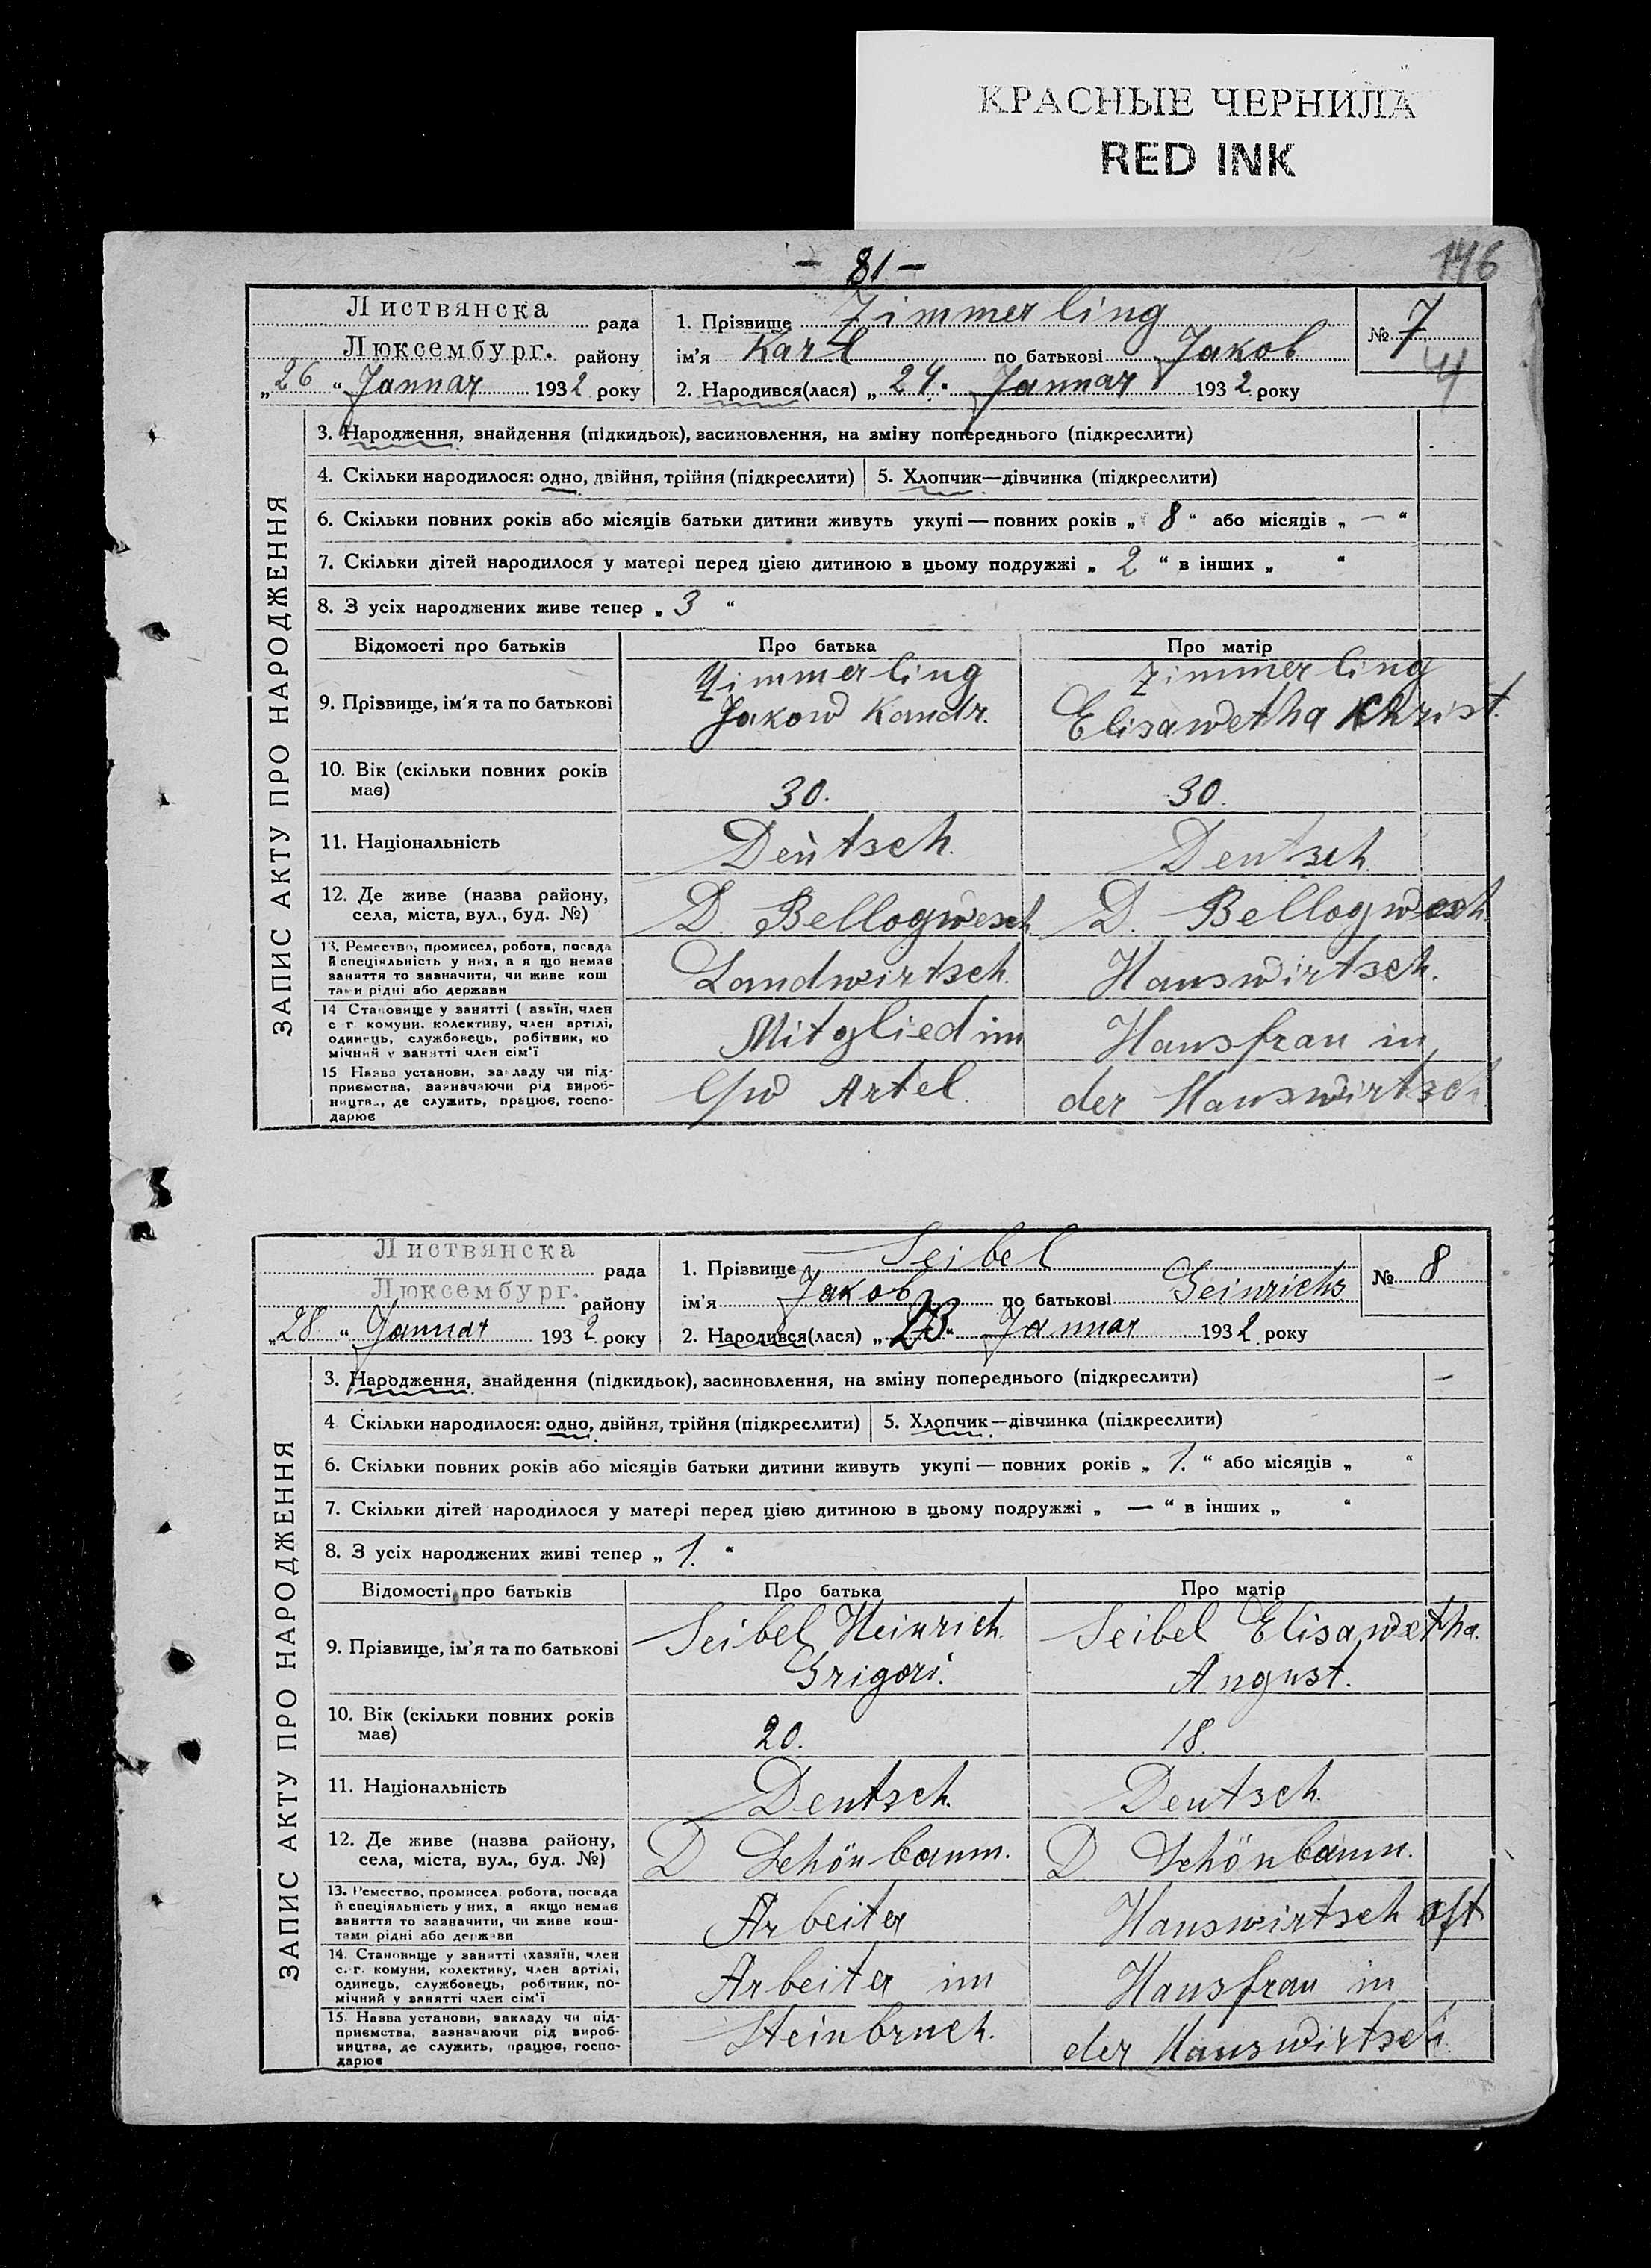 КРАСНЫЕ ЧЕРНИЛА
RED INK
- 81 -
146
Листвянска рада
Люксембург. району
„26“ Januar 1932 року
1. Прізвище Zimmerling
ім'я Karl по батькові Jakob
2. Народився(лася) „24. Januar 1932 року
№ 7
ЗАПИС АКТУ ПРО НАРОДЖЕННЯ
3. Народження, знайдення (підкидьок), засиновлення, на зміну попереднього (підкреслити)
4. Скільки народилося: одно, двійня, трійня (підкреслити) 5. Хлопчик—дівчинка (підкреслити)
6. Скільки повних років або місяців батьки дитини живуть укупі — повних років „ 8 “ або місяців „ — “
7. Скільки дітей народилося у матері перед цією дитиною в цьому подружжі „ 2 “ в інших „ “
8. З усіх народжених живе тепер „ 3 “
Відомості про батьків Про батька Про матір
9. Прізвище, ім'я та по батькові
Zimmerling
Jakow Kandr.
Zimmerling
Elisawetha Christ.
10. Вік (скільки повних років
має)
30. 30.
11. Національність Deutsch. Deutsch.
12. Де живе (назва району,
села, міста, вул., буд. №)
D. Bellogwesch D. Bellogwesch.
13. Ремество, промисел, робота, посада
й спеціяльність у них, а я що немає
заняття то зазначити, чи живе кош
тами рідні або держави
Landwirtsch. Hauswirtsch.
14 Становище у занятті ( авяїн, член
с г. комуни, колективу, член артілі,
одинець, службовець, робітник, по
мічний у занятті член сім'ї
Mitglied im Hausfrau in
15 Назва установи, закладу чи під-
приємства, зазначаючи рід вироб-
ництв., де служить, працює, госпо-
дарює
Artel. der Hauswirtsch
Листвянска рада
Люксембург. району
„28“ Januar 1932 року
1. Прізвище Seibel
ім'я Jakob по батькові Geinrichs
2. Народився(лася) „ “ Januar 1932 року
№ 8
ЗАПИС АКТУ ПРО НАРОДЖЕННЯ
3. Народження, знайдення (підкидьок), засиновлення, на зміну попереднього (підкреслити) —
4 Скільки народилося: одно, двійня, трійня (підкреслити) 5. Хлопчик—дівчинка (підкреслити)
6. Скільки повних років або місяців батьки дитини живуть укупі — повних років „ 1. “ або місяців „ “
7. Скільки дітей народилося у матері перед цією дитиною в цьому подружжі „ — “ в інших „ “
8. З усіх народжених живі тепер „ 1. “
Відомості про батьків Про батька Про матір
9. Прізвище, ім'я та по батькові
Seibel Heinrich.
Grigori.
Seibel Elisawetha.
August.
10. Вік (скільки повних років
має)
20. 18.
11. Національність Deutsch. Deutsch.
12. Де живе (назва району,
села, міста, вул., буд. №)
D Schönbaum. D Schönbaum.
13. Ремество, промисел. робота, посада
й спеціяльність у них, а якщо немає
заняття то зазначити, чи живе кош-
тами рідні або держави
Arbeiter Hauswirtschaft
14. Становище у занятті (хавяїн, член
с. г. комуни, колективу, член артілі,
одинець, службовець, робітник, по-
мічний у занятті член сім'ї
Arbeiter im Hausfrau in
15. Назва установи, закладу чи під-
приємства, зазначаючи рід вироб-
ництва, де служить, працює, госпо-
дарює
Steinbruch. der Hauswirtsch.